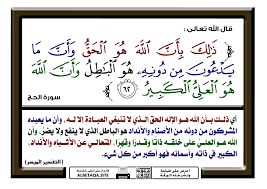 قال الله تعالى :
﴿ ذَٰلِكَ بِأَنَّ اللَّهَ هُوَ الْحَقُّ وَأَنَّ مَا
يَدْعُونَ مِن دُونِهِ هُوَ الْبَاطِلُ وَأَنَّ اللَّهَ
هُوَ الْعَلِيُّ الْكَبِيرُ ٦٢ ﴾
سورة الحج
أي ذلك بأن الله هو الإله الحق الذي لا تنبغي العبادة إلا له، وأن ما يعبده
المشركون من دونه من الأصنام والأنداد هو الباطل الذي لا ينفع ولا يضر، وأن
الله هو العلي على خلقه ذاتا وقدرا وقهرا، المتعالي عن الأشباه والأنداد،
الكبير في ذاته وأسمائه فهو أكبر من كل شيء.
( التفسير الميسر )
ALBETAQA.SITE